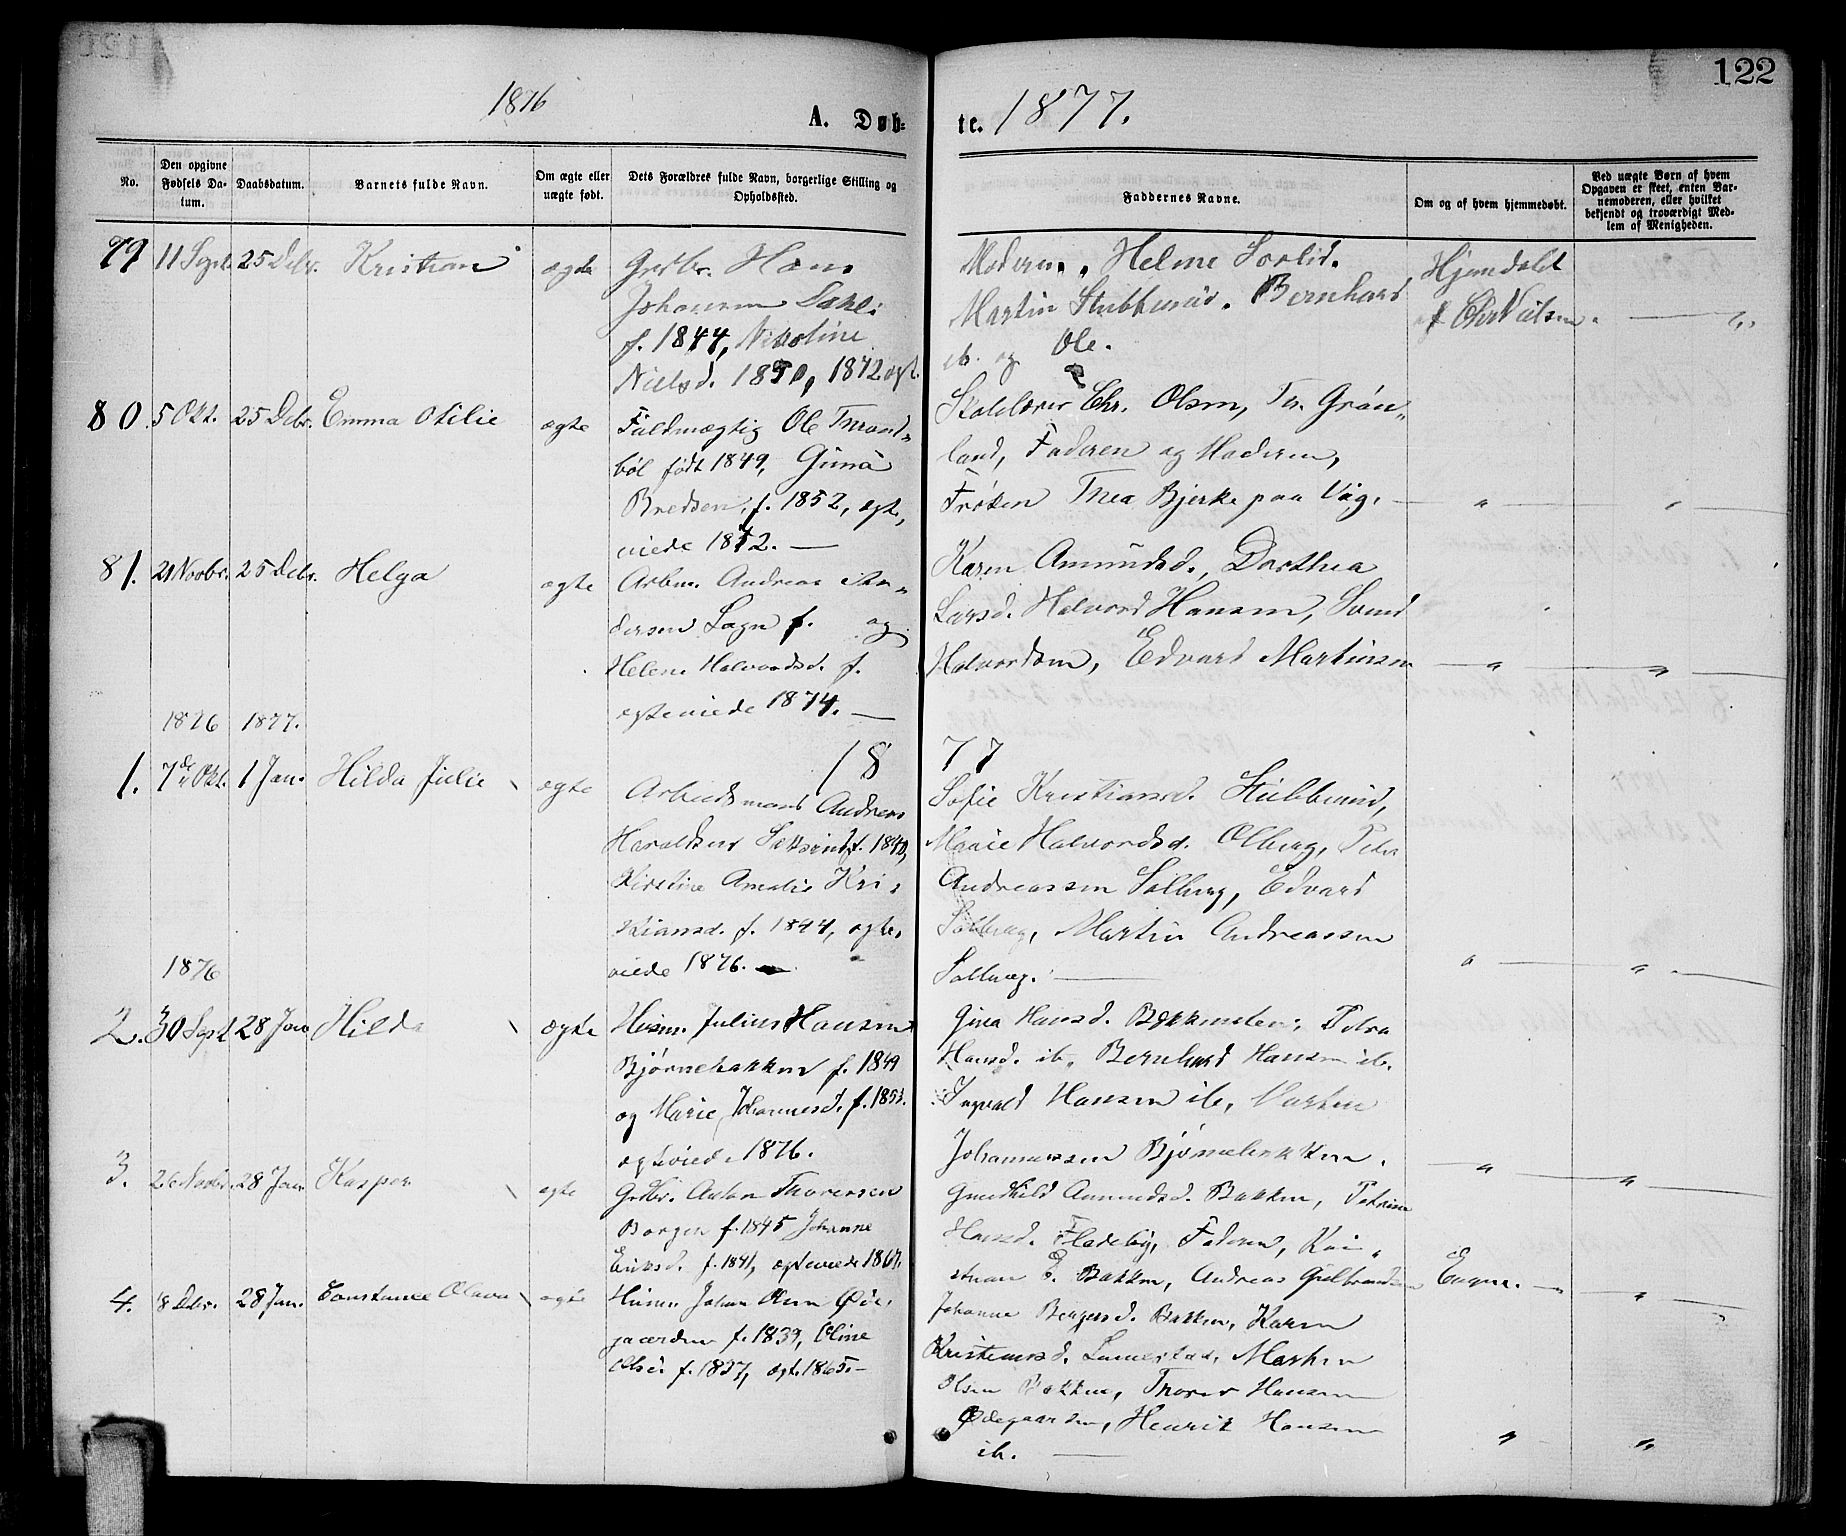 122
1876
A. Døb-
te. 1877.
No.
Den opgivne Fødsels Datum.
Daabsdatum.
Barnets fulde Navn.
Om ægte eller uægte født.
Dets Forældres fulde Navn, borgerlige Stilling og Opholdssted.
Faddernes Navne.
Om og af hvem hjemmedøbt.
Ved uægte Børn af hvem Opgaven er skeet, enten Barnemoderen, eller hvilket bekjendt og troværdigt Medlem af Menigheden.
79 11 Sept. 25 Debr. Kristian ægte Grdbr. Hans
Johansen
f. 1844, Nikoline
Nielsd. 1850, 1872 ægt.
Moderen, Helene
Martin Stubberud. Bernhard
ib. og Ole.
Hjemdøbt
af Chr Nielsen.
80. 5 Okt. 25 Debr. Emma Otilie ægte Fuldmægtig Ole Trond-
bøl født 1849, Gina
Bredsen, f. 1852, ægte,
viede 1872. —
Skolelærer Chr. Olsen, Th. Grøn-
land, Faderen og Moderen,
Frøken Thea Bjerke paa Vog.
81. 21 Novbr. 25 Debr. Helga ægte Arbm. Andreas An-
dersen Sogn f. og
Helene Halvordsd. f.
ægteviede 1874. —
Karen Amundsd., Dorthea
Larsd. Halvord Hansen, Svend
Halvordsen, Edvard Martinsen
1876 1877.
18 77
1. 7de Okt. 1 Jan. Hilda Julie ægte Arbeidsmand Andreas
Haraldsen f. 1840,
Kirstine Amalie Kri-
stiansd. f. 1844, ægte-
viede 1876. —
Sofie Kristiansd. Stubberud,
Marie Halvordsd. Olberg, Peder
Andreassen Solberg, Edvard
Solberg, Martin Andreassen
Solberg. —
1876
2. 30 Sept 28 Jan Hilda ægte Husm. Julius Hansen
Bjørnebakken f. 1849
og Marie Johannesd. f. 1853.
ægteviede 1876.
Gina Hansd. Petra
Hansd. ib, Bernhard Hansen ib.
Ingvald Hansen ib, Martin
Johannessen Bjørnebakken.
3. 26 Novbr. 28 Jan Kasper ægte Grdbr. Anton Thoresen
Borgen f. 1845 Johanne
Eriksd. f. 1841, ægteviede 1867.
Gundhild Amundsd. Bakken, Petrine
Hansd. Fladeby, Faderen, Kri-
stian E. Bakken, Andreas Gulbrandsen
4. 8 Debr. 28 Jan. Constance Olava ægte Husm. Johan Olsen Øde-
gaarden f. 1839, Oline
Olsd. f. 1837, ægte. 1865. —
Johanne Bergersd. Bakken, Karen
Kristensd. Martin
Olsen Bakken, Thorer Hansen
Ødegaarden, Henrik Hansen
ib. —